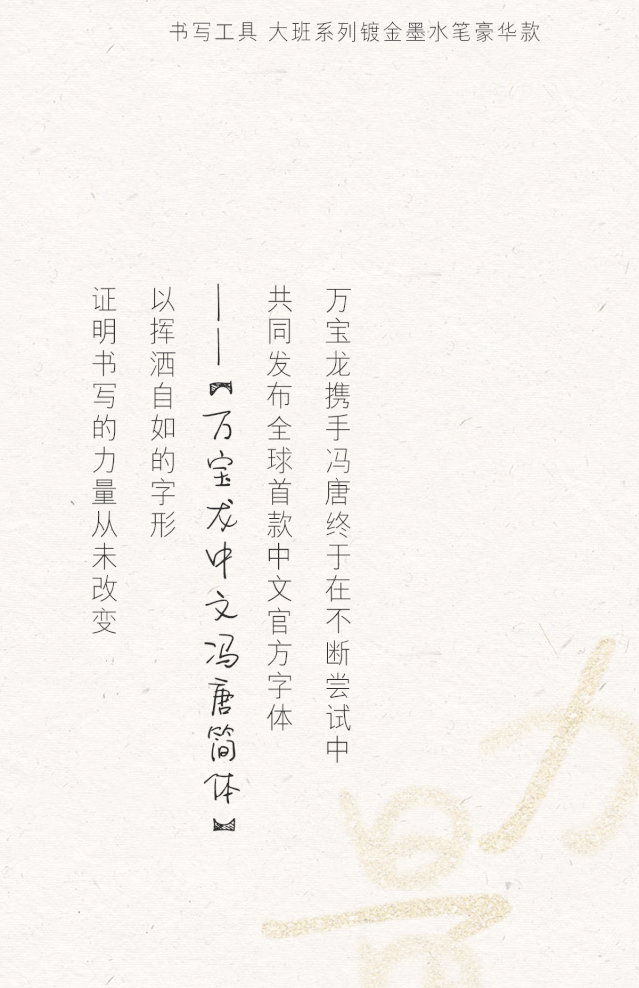 书写工具 大班系列镀金墨水笔豪华款
万宝龙携手冯唐终于在不断尝试中
共同发布全球首款中文官方字体
——【万宝龙中文冯唐简体】
以挥洒自如的字形
证明书写的力量从未改变
力
量